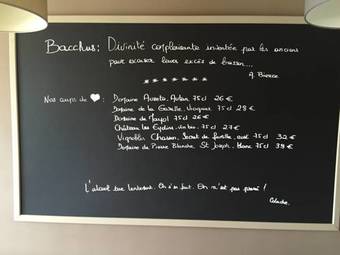 Bacchus: Divinité complaisante inventée par les anciens
pour excuser leurs excès de boisson....
A. Bierce
Nos coups de ❤:
Domaine 75cl 26 €
Domaine de la Garelle, 75cl 28 €
Domaine de Mayol 75cl 26 €
Château les Eydins, vin bio, 75cl 27 €
Vignoble Chasson, Secret de famille, 75cl 32 €
Domaine de Pierre Blanche, St Joseph, blanc 75cl 38 €
L'alcool tue lentement. On s'en fout. On n'est pas pressé !